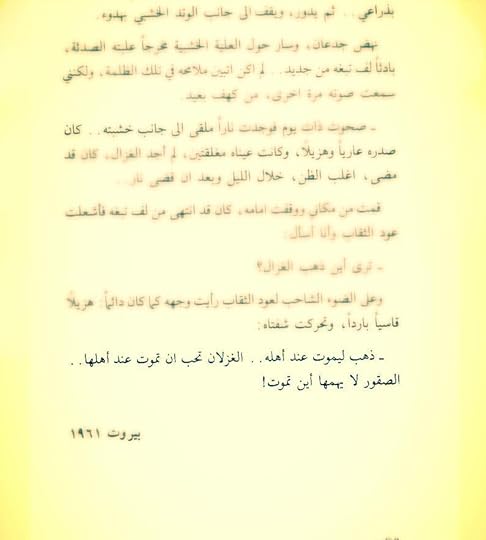 بذراعي.. ثم يدور، ويقف الى جانب الوتد الخشبي بهدوء.
نهض جدعان، وسار حول العلية الخشبية مخرجاً علبته الصدئة،
بادئاً لف تبغه من جديد.. لم اكن اتبين ملامحه في تلك الظلمة، ولكنني
سمعت صوته مرة اخرى، من كهف بعيد
ـ صحوت ذات يوم فوجدت ناراً ملقى الى جانب خشبته.. كان
صدره عارياً وهزيلاً، وكانت عيناه مغلقتين، لم أجد الغزال، كان قد
مضى، اغلب الظن، خلال الليل وبعد ان قضى نار..
قمت من مكاني ووقفت امامه، كان قد انتهى من لف تبغه فأشعلت
عود الثقاب وأنا أسأل:
ـ ترى أين ذهب الغزال؟
وعلى الضوء الشاحب لعود الثقاب رأيت وجهه كما كان دائماً: هزيلاً
قاسياً بارداً، وتحركت شفتاه:
ـ ذهب ليموت عند أهله.. الغزلان تحب ان تموت عند أهلها..
الصقور لا يهمها أين تموت!
بيروت ١٩٦١